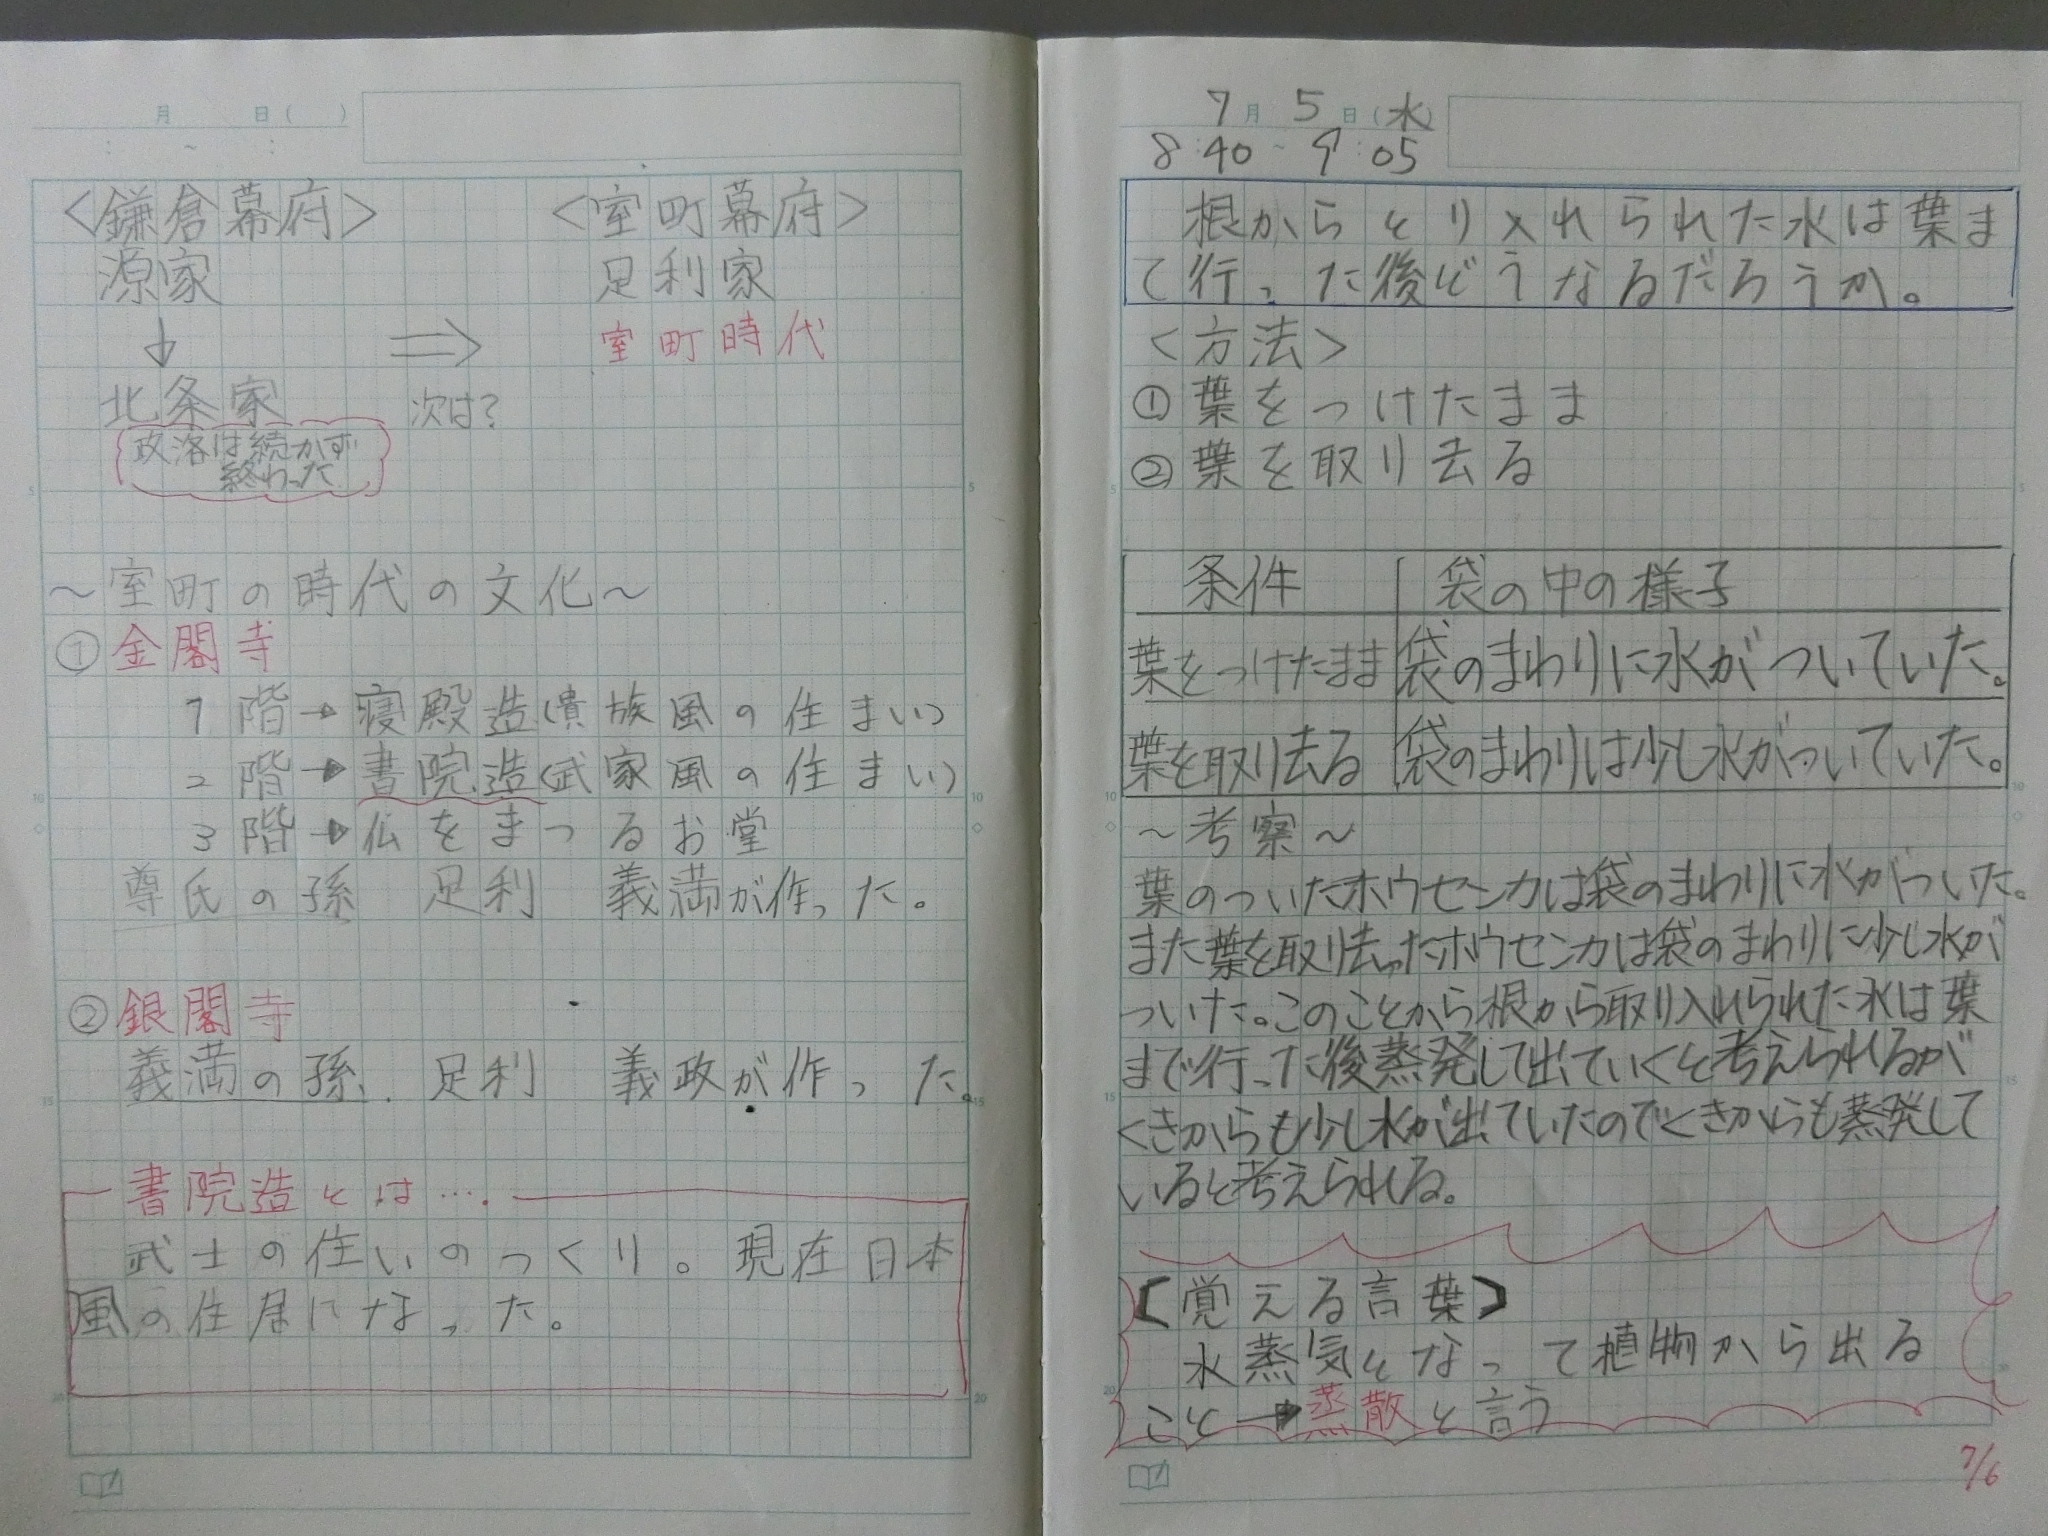 月 日( )
: ~ :
<鎌倉幕府> <室町幕府>
源家 足利家
↓ ⇒ 室町時代
北条家 次は?
政落は続かず
終わった
~室町の時代の文化~
①金閣寺
1階→寝殿造(貴族風の住まい)
2階→書院造(武家風の住まい)
3階→仏をまつるお堂
尊氏の孫 足利 義満が作った。
②銀閣寺
義満の孫、足利 義政が作った。
書院造とは….
武士の住いのつくり。現在日本
風の住居になった。
7月5日(水)
8:40~9:05
根からとり入れられた水は葉ま
で行った後どうなるだろうか。
<方法>
①葉をつけたまま
②葉を取り去る
条件 袋の中の様子
葉をつけたまま 袋のまわりに水がついていた。
葉を取り去る 袋のまわりは少し水がついていた。
~考察~
葉のついたホウセンカは袋のまわりに水がついた。
また葉を取り去ったホウセンカは袋のまわりに少し水が
ついた。このことから根から取り入れられた水は葉
まで行った後蒸発して出ていくと考えられるが
くきからも少し水が出ていたのでくきからも蒸発して
いると考えられる。
【覚える言葉】
水蒸気となって植物から出る
こと→蒸散と言う
7/6